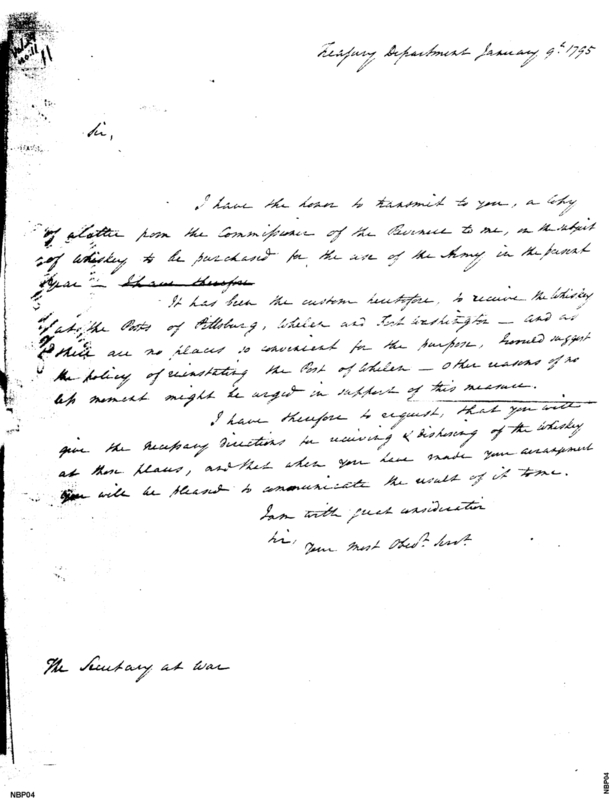 Vol. 29
No. 11
11
Treasury Department January 9th 1795
Sir,
I have the honor to transmit to you, a Copy
of a letter from the Commissioner of the Revenue to me, on the subject
of Whiskey to be purchased for the use of the Army in the present
Year — I have therefore
It has been the custom heretofore, to receive the Whiskey
at the Posts of Pittsburg, Whelen and Fort Washington — and as
there are no places so convenient for the purpose, I would suggest
the policy of reinstating the Post of Whelen — other reasons of no
less moment might be urged in support of this measure.
I have therefore to request, that you will
give the necessary directions for receiving & disposing of the Whiskey
at those places, and that when you have made your arrangement
you will be pleased to communicate the result of it to me.
I am with great consideration
Sir,
Your Most Obedt. Servt.
The Secretary at War
NBP04
NBP04